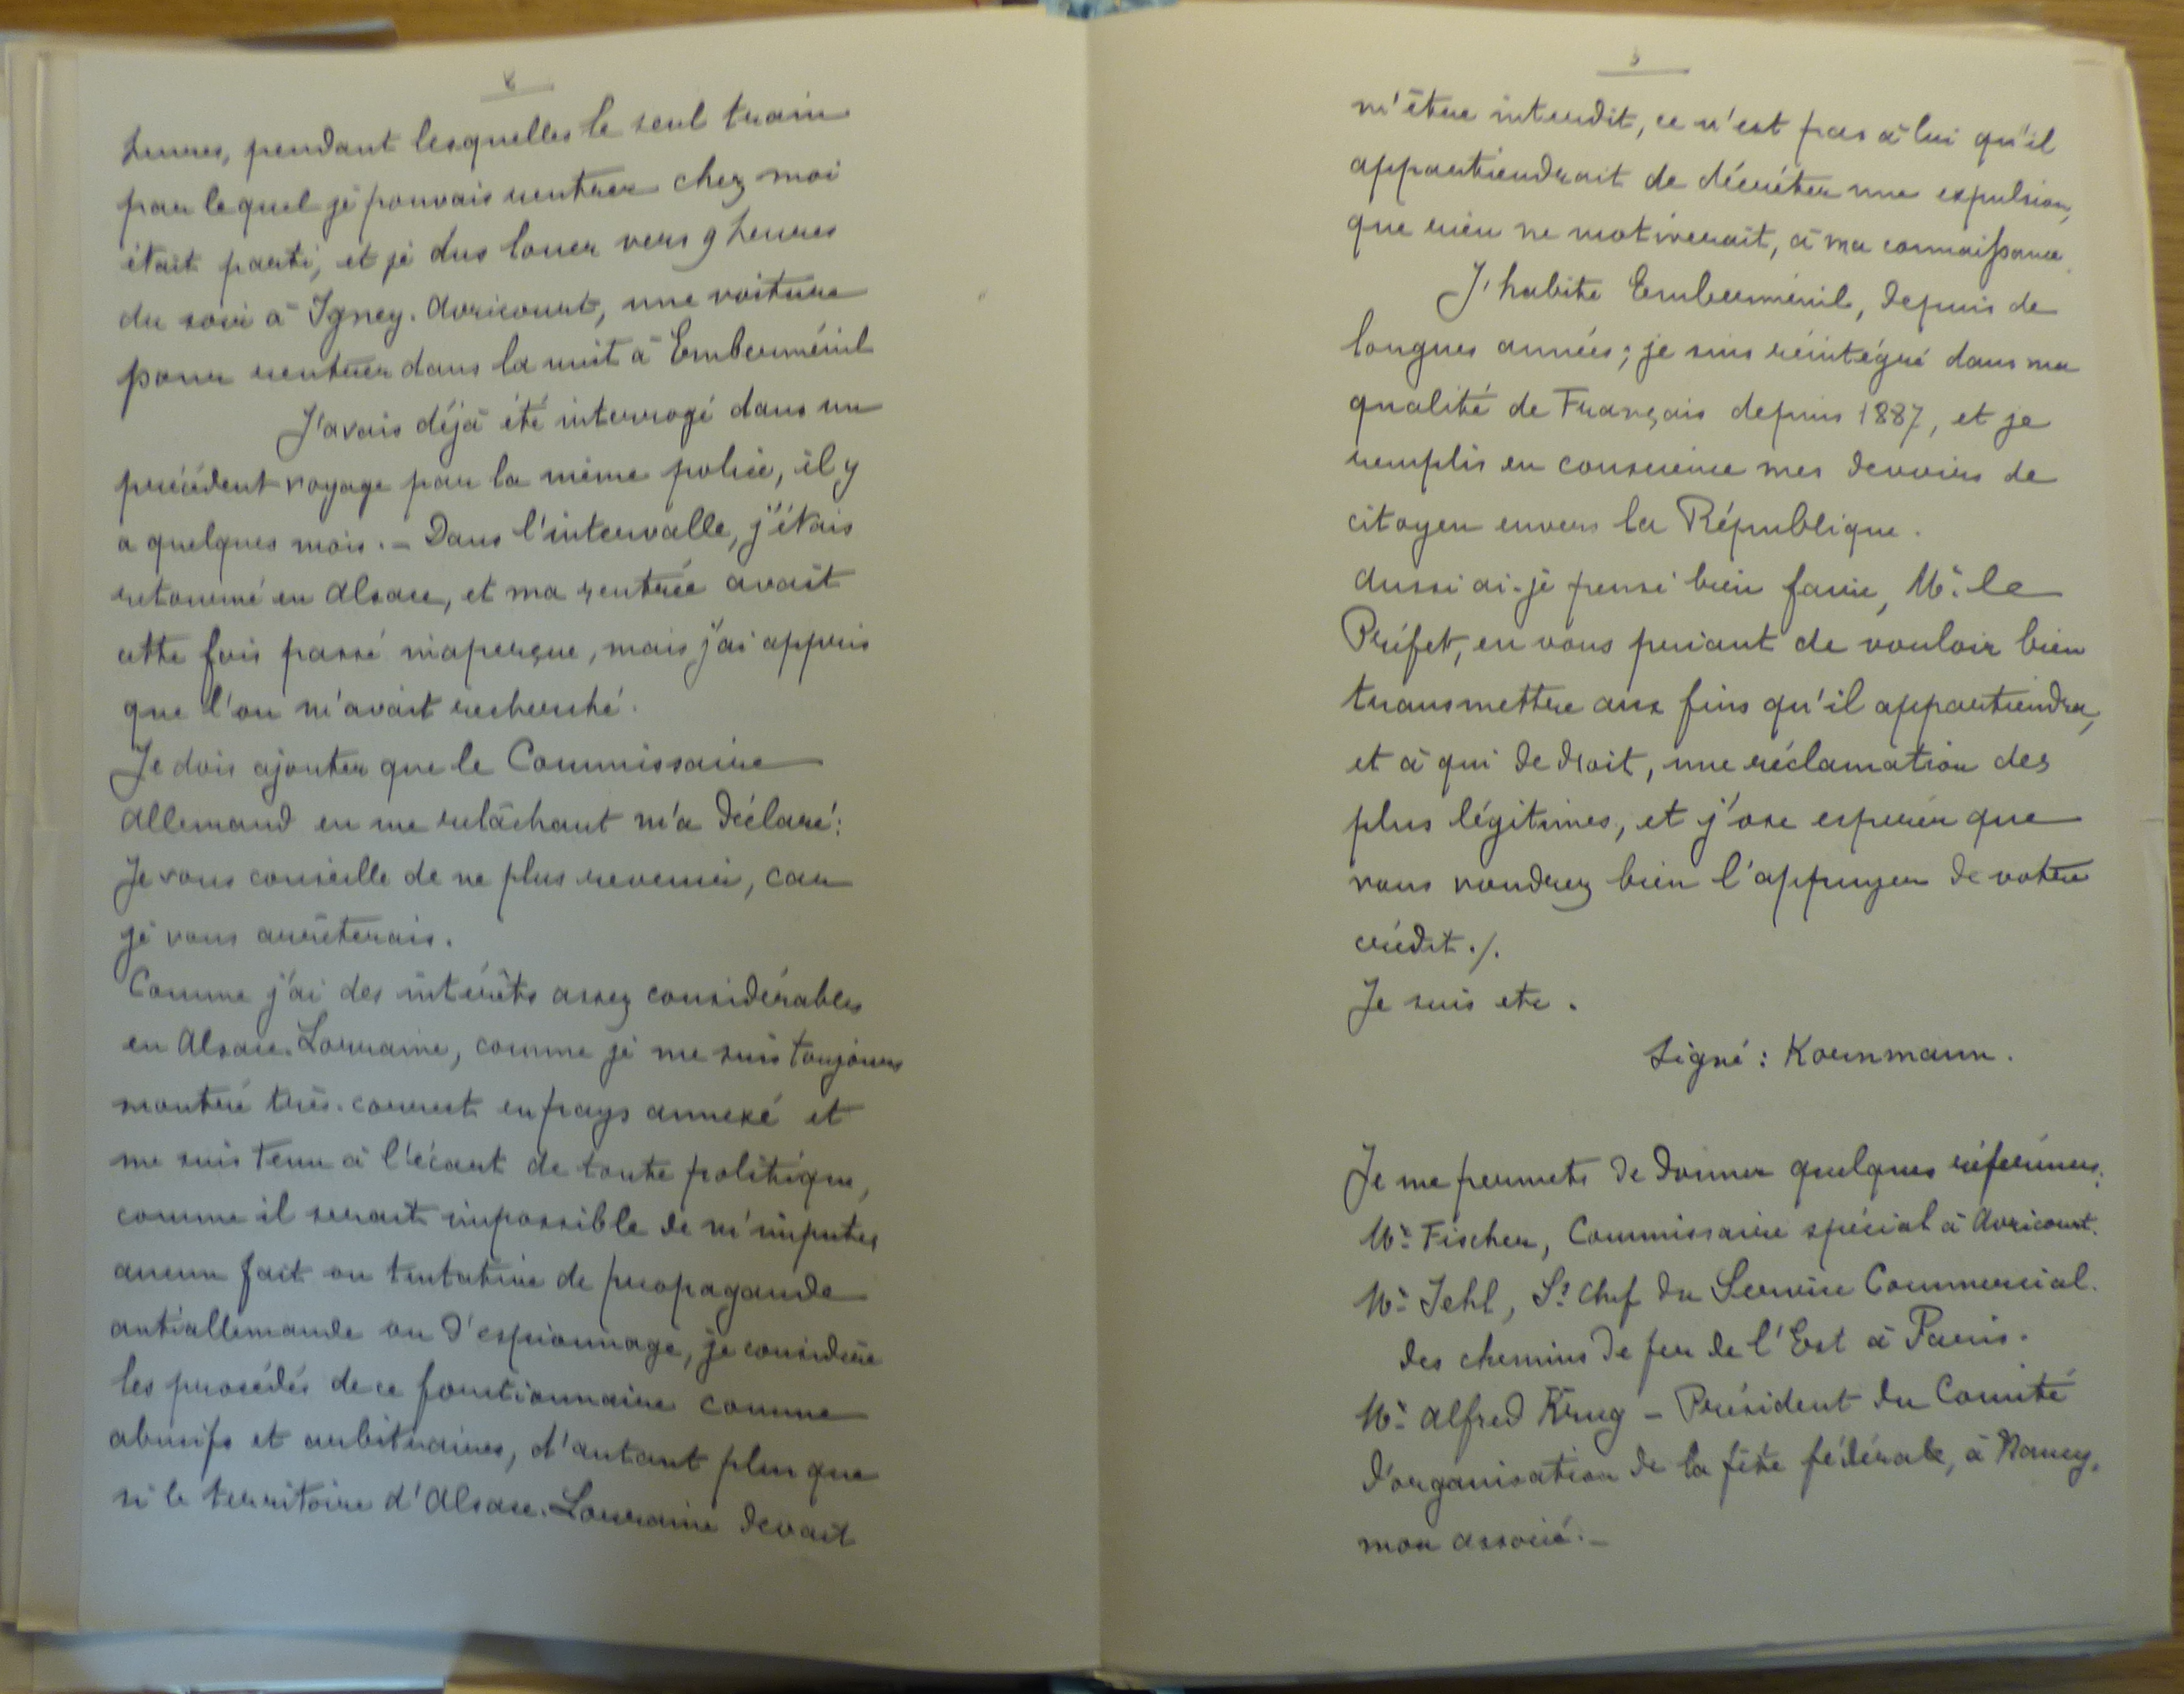 heures, pendant lesquelles le seul train
par lequel je pouvais rentrer chez moi
était parti, et je dus louer vers 9 heures
du soir à Igney-Avricourt, une voiture
pour rentrer dans la nuit à Emberménil
J'avais déjà été interrogé dans un
précédent voyage par la même police, il y
a quelques mois. - Dans l'intervalle, j'étais
retourné en Alsace, et ma rentrée avait
cette fois passé inaperçue, mais j'ai appris
que l'on m'avait recherché.
Je dois ajouter que le Commissaire
Allemand en me relâchant m'a déclaré:
Je vous conseille de ne plus revenir, car
je vous arrêterais.
Comme j'ai des intérêts assez considérables
en Alsace-Lorraine, comme je me suis toujours
montré très-correct en pays annexé et
me suis tenu à l'écart de toute politique,
comme il serait impossible de m'imputer
aucun fait ou tentative de propagande
antiallemande ou d'espionnage, je considère
les procédés de ce fonctionnaire comme
abusifs et arbitraires, d'autant plus que
si le territoire d'Alsace-Lorraine devait
m'être interdit, ce n'est pas à lui qu'il
appartiendrait de décréter une expulsion,
que rien ne motiverait, à ma connaissance.
J'habite Emberménil, depuis de
longues années; je suis réintégré dans ma
qualité de Français depuis 1887, et je
remplis en conscience mes devoirs de
citoyen envers la République.
Aussi ai-je pensé bien faire, Mr. le
Préfet, en vous priant de vouloir bien
transmettre aux fins qu'il appartiendra,
et à qui de droit, une réclamation des
plus légitimes, et j'ose espérer que
vous voudrez bien l'appuyer de votre
crédit./.
Je suis etc.
Signé: Kornmann.
Je me permets de donner quelques références:
Mr. Fischer, Commissaire spécial à Avricourt.
Mr. Jehl, S/s Chef du Service Commercial.
des chemins de fer de l'Est à Paris.
Mr. Alfred Krug - Président du Comité
d'organisation de la fête fédérale, à Nancy,
mon associé.-